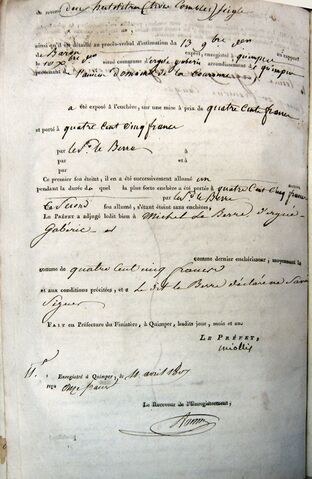 ainsi qu'il est détaillé au procès-verbal d'estimation du 13 9bre
du Baron expert, enregistré à quimper
le 10 Xbre situé commune d'ergué gabéric arrondissement de quimper
provenant de l'ancien domaine de la Couronne
a été exposé à l'enchère, sur une mise à prix de quatre Cent francs
et porté à quatre Cent cinq francs
par le Sr. le Berre
par à et à
Ce premier feu éteint, il en a été successivement allumé un
pendant la durée du quel la plus forte enchère a été portée à quatre Cent Cinq francs
par le Sr. le Berre
Le Second feu allumé, s'étant éteint sans enchères,
Le Préfet a adjugé ledit bien à Michel le Berre, d'ergué
Gabéric
comme dernier enchérisseur, moyennant la
somme de quatre Cent cinq francs
et aux conditions précitées, et a le dit le Berre déclaré ne Savoir
Signer
Fait en Préfecture du Finistère, à Quimper, lesdits jour, mois et an.
Le Préfet,
miollis
11f. Enregistré à Quimper, le 11 avril 1807
reçu onze francs
Le Receveur de l'Enregistrement,